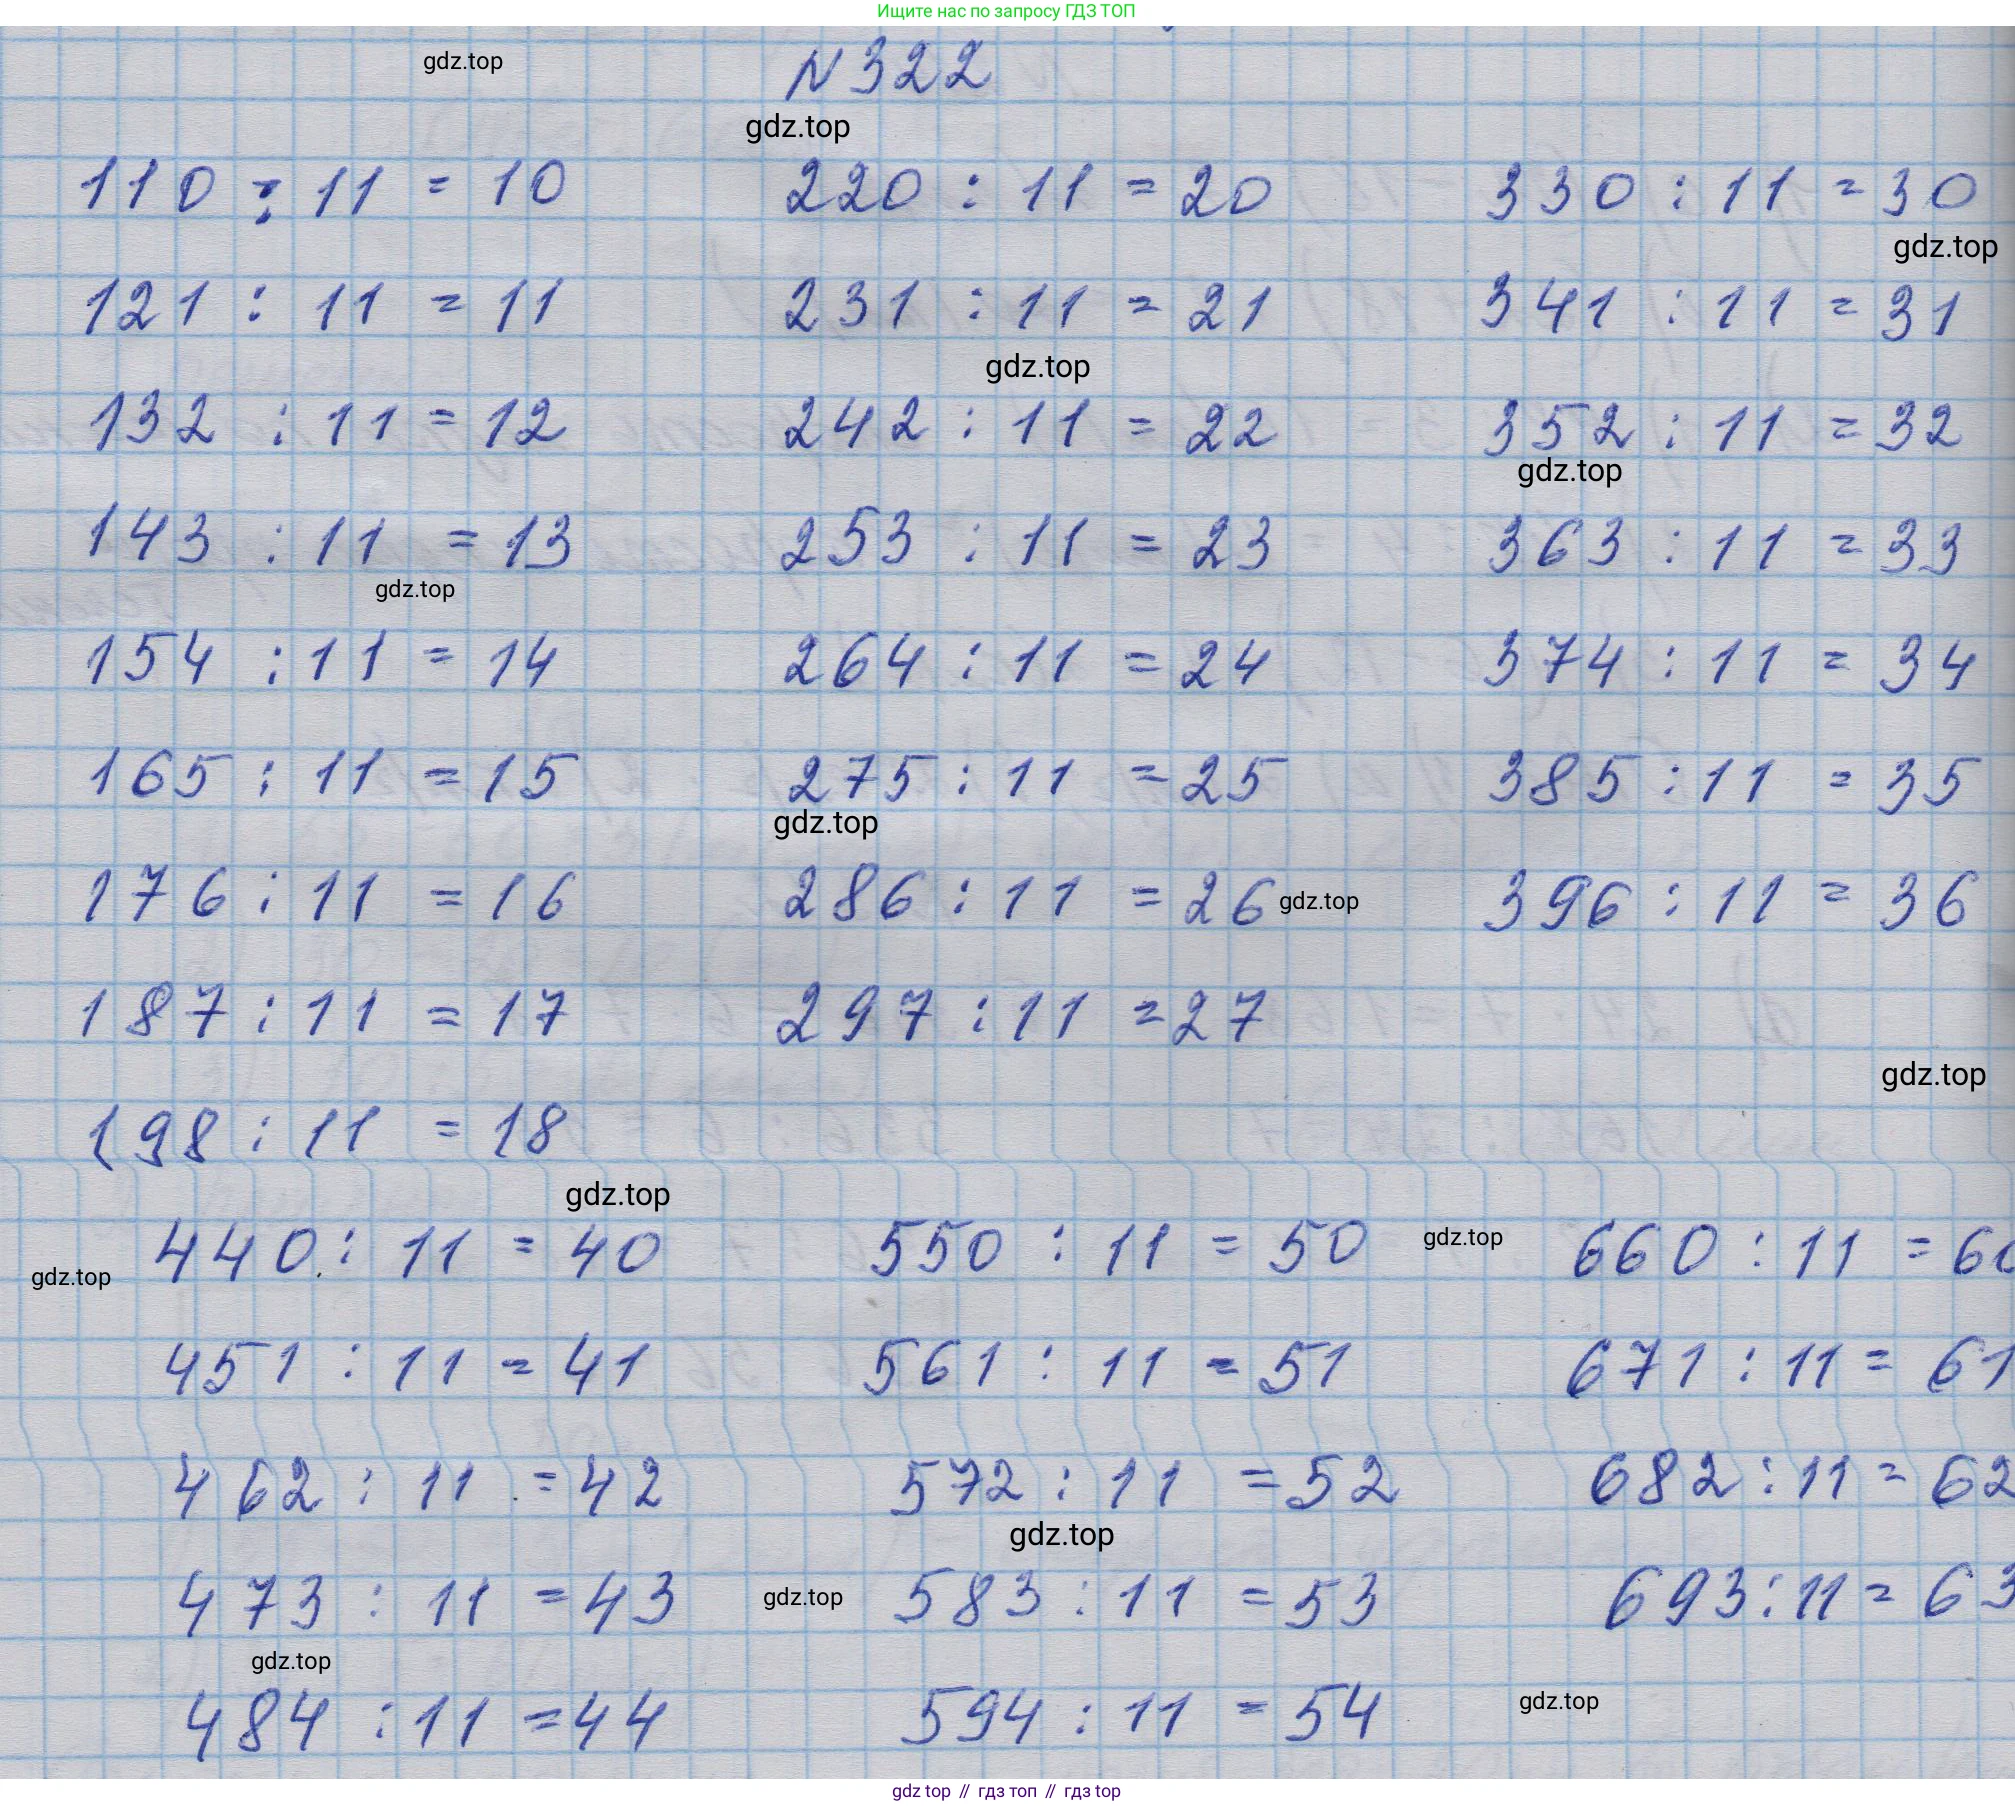 Ищите нас по запросу ГДЗ ТОП
gdz.top
N 322
gdz.top
110 : 11 = 10 220 : 11 = 20 330 : 11 = 30
gdz.top
121 : 11 = 11 231 : 11 = 21 341 : 11 = 31
gdz.top
132 : 11 = 12 242 : 11 = 22 352 : 11 = 32
gdz.top
143 : 11 = 13 253 : 11 = 23 363 : 11 = 33
gdz.top
154 : 11 = 14 264 : 11 = 24 374 : 11 = 34
165 : 11 = 15 275 : 11 = 25 385 : 11 = 35
gdz.top
176 : 11 = 16 286 : 11 = 26 gdz.top 396 : 11 = 36
187 : 11 = 17 297 : 11 = 27
gdz.top
198 : 11 = 18
gdz.top
440 : 11 = 40 550 : 11 = 50 gdz.top 660 : 11 = 60
gdz.top
451 : 11 = 41 561 : 11 = 51 671 : 11 = 61
462 : 11 = 42 572 : 11 = 52 682 : 11 = 62
gdz.top
473 : 11 = 43 gdz.top 583 : 11 = 53 693 : 11 = 63
gdz.top
484 : 11 = 44 594 : 11 = 54 gdz.top
gdz top // гдз топ // гдз top